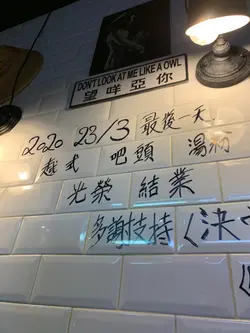 DON'T LOOK AT ME LIKE A OWL
望咩亞你
2020 23/3 最後一天
越式 吧頭 湯
光榮 結業
多謝支持《決